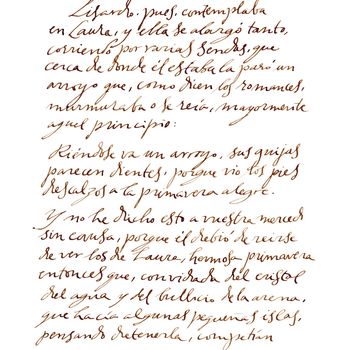 Lisardo, pues, contemplaba
en Laura, y ella se alargó tanto,
corriendo por varias sendas, que
cerca de donde él estaba la paró un
arroyo que, como dicen los romances,
murmuraba o se reía, mayormente
aquel principio:
Riéndose va un arroyo, sus guijas
parecen dientes, porque vio los pies
descalzos a la primavera alegre.
Y no he dicho esto a vuestra merced
sin causa, porque él debió de reirse
de ver los de Laura, hermosa primavera
entonces que, convidada del cristal
del agua y del bullicio de la arena,
que hacía algunas pequeñas islas,
pensando detenerla, competían